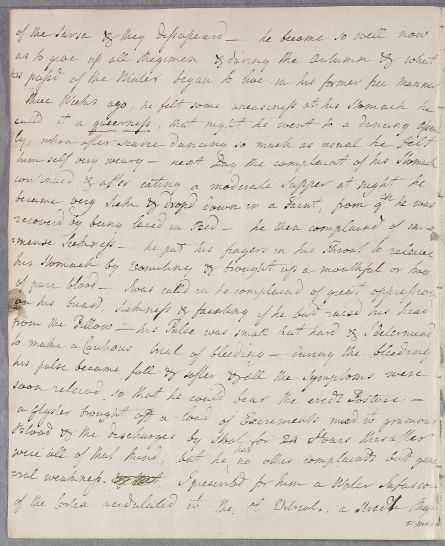 of the Sarsa & they disappeard — he became so well now
as to give up all Regimen & during the Autumn & what
has pass'd of the Winter began to live in his former free manner
Three Weeks ago, he felt some uneasiness at his Stomach he
call'd it a queerness, that night he went to a dancing Assem
bly, when after scarce dancing so much as usual he felt
himself very weary — next Day the complaint of his Stomach
continued & after eating a moderate Supper at night he
became very Sick & drop'd down in a Faint, from qch he was
recoverd by being laied in Bed — he then complained of im
=mense Sickness — he put his fingers in his Throat to relieve
his Stomach by Vomiting & brought up a mouthful or two
of pure blood — I was called in he complained of great oppression
on his breast Sickness & fainting if he but raised his head
from the Pillow — his Pulse was small but hard & I determined
to make a Cautious trial of bleeding — during the bleeding
his pulse became full & softer & all the Symptoms were
soon relieved so that he could bear the erect Posture —
a Glyster brought off a load of Excrements mixd wt grumous
Blood & the discharges by Stool for 24 Hours thereafter
were all of that kind, but he had no other complaints but gene
=ral weakness. I prescribed for him a Water Infusion
of the Cortex acidulated wt the, of Vitriol, a Strict Regi
=men